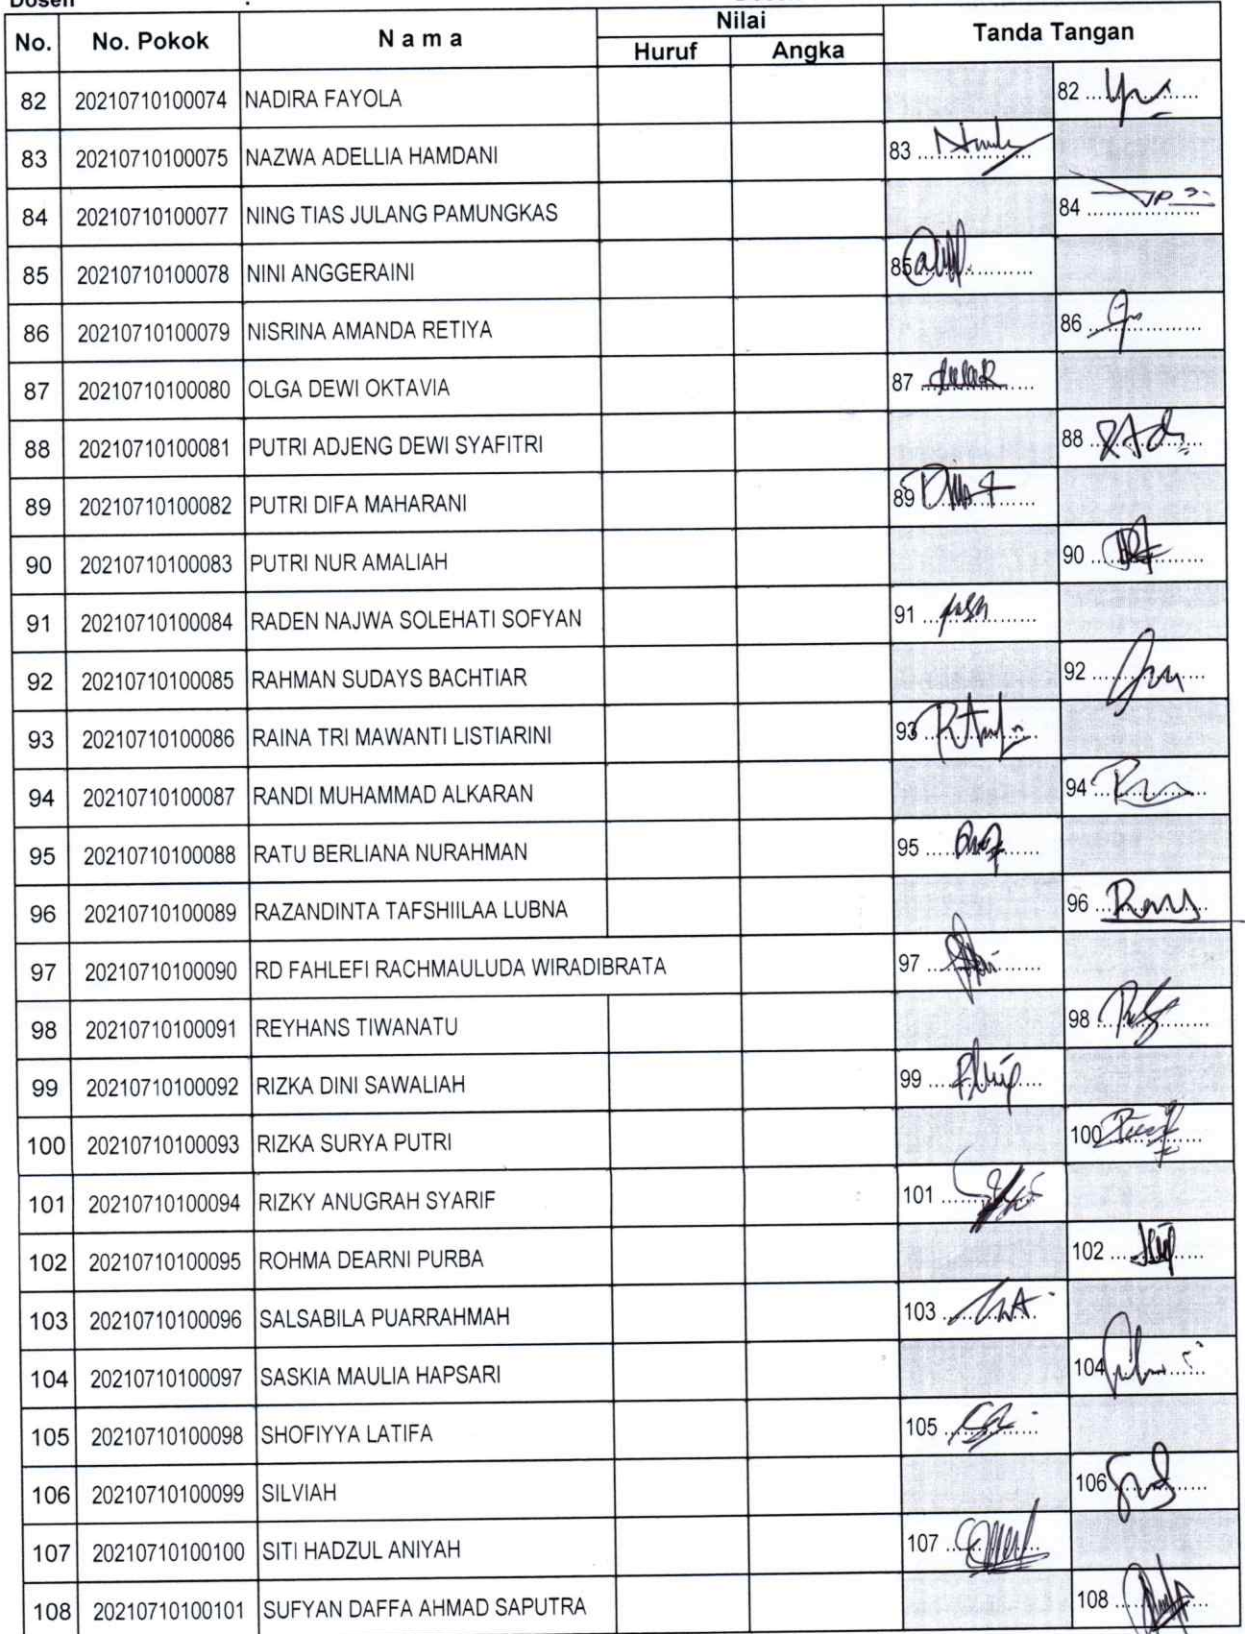 Dosen :
No. No. Pokok N a m a Nilai Tanda Tangan
Huruf Angka
82 20210710100074 NADIRA FAYOLA 82
83 20210710100075 NAZWA ADELLIA HAMDANI 83
84 20210710100077 NING TIAS JULANG PAMUNGKAS 84
85 20210710100078 NINI ANGGERAINI 85
86 20210710100079 NISRINA AMANDA RETIYA 86
87 20210710100080 OLGA DEWI OKTAVIA 87
88 20210710100081 PUTRI ADJENG DEWI SYAFITRI 88
89 20210710100082 PUTRI DIFA MAHARANI 89
90 20210710100083 PUTRI NUR AMALIAH 90
91 20210710100084 RADEN NAJWA SOLEHATI SOFYAN 91
92 20210710100085 RAHMAN SUDAYS BACHTIAR 92
93 20210710100086 RAINA TRI MAWANTI LISTIARINI 93
94 20210710100087 RANDI MUHAMMAD ALKARAN 94
95 20210710100088 RATU BERLIANA NURAHMAN 95
96 20210710100089 RAZANDINTA TAFSHIILAA LUBNA 96
97 20210710100090 RD FAHLEFI RACHMAULUDA WIRADIBRATA 97
98 20210710100091 REYHANS TIWANATU 98
99 20210710100092 RIZKA DINI SAWALIAH 99
100 20210710100093 RIZKA SURYA PUTRI 100
101 20210710100094 RIZKY ANUGRAH SYARIF 101
102 20210710100095 ROHMA DEARNI PURBA 102
103 20210710100096 SALSABILA PUARRAHMAH 103
104 20210710100097 SASKIA MAULIA HAPSARI 104
105 20210710100098 SHOFIYYA LATIFA 105
106 20210710100099 SILVIAH 106
107 20210710100100 SITI HADZUL ANIYAH 107
108 20210710100101 SUFYAN DAFFA AHMAD SAPUTRA 108